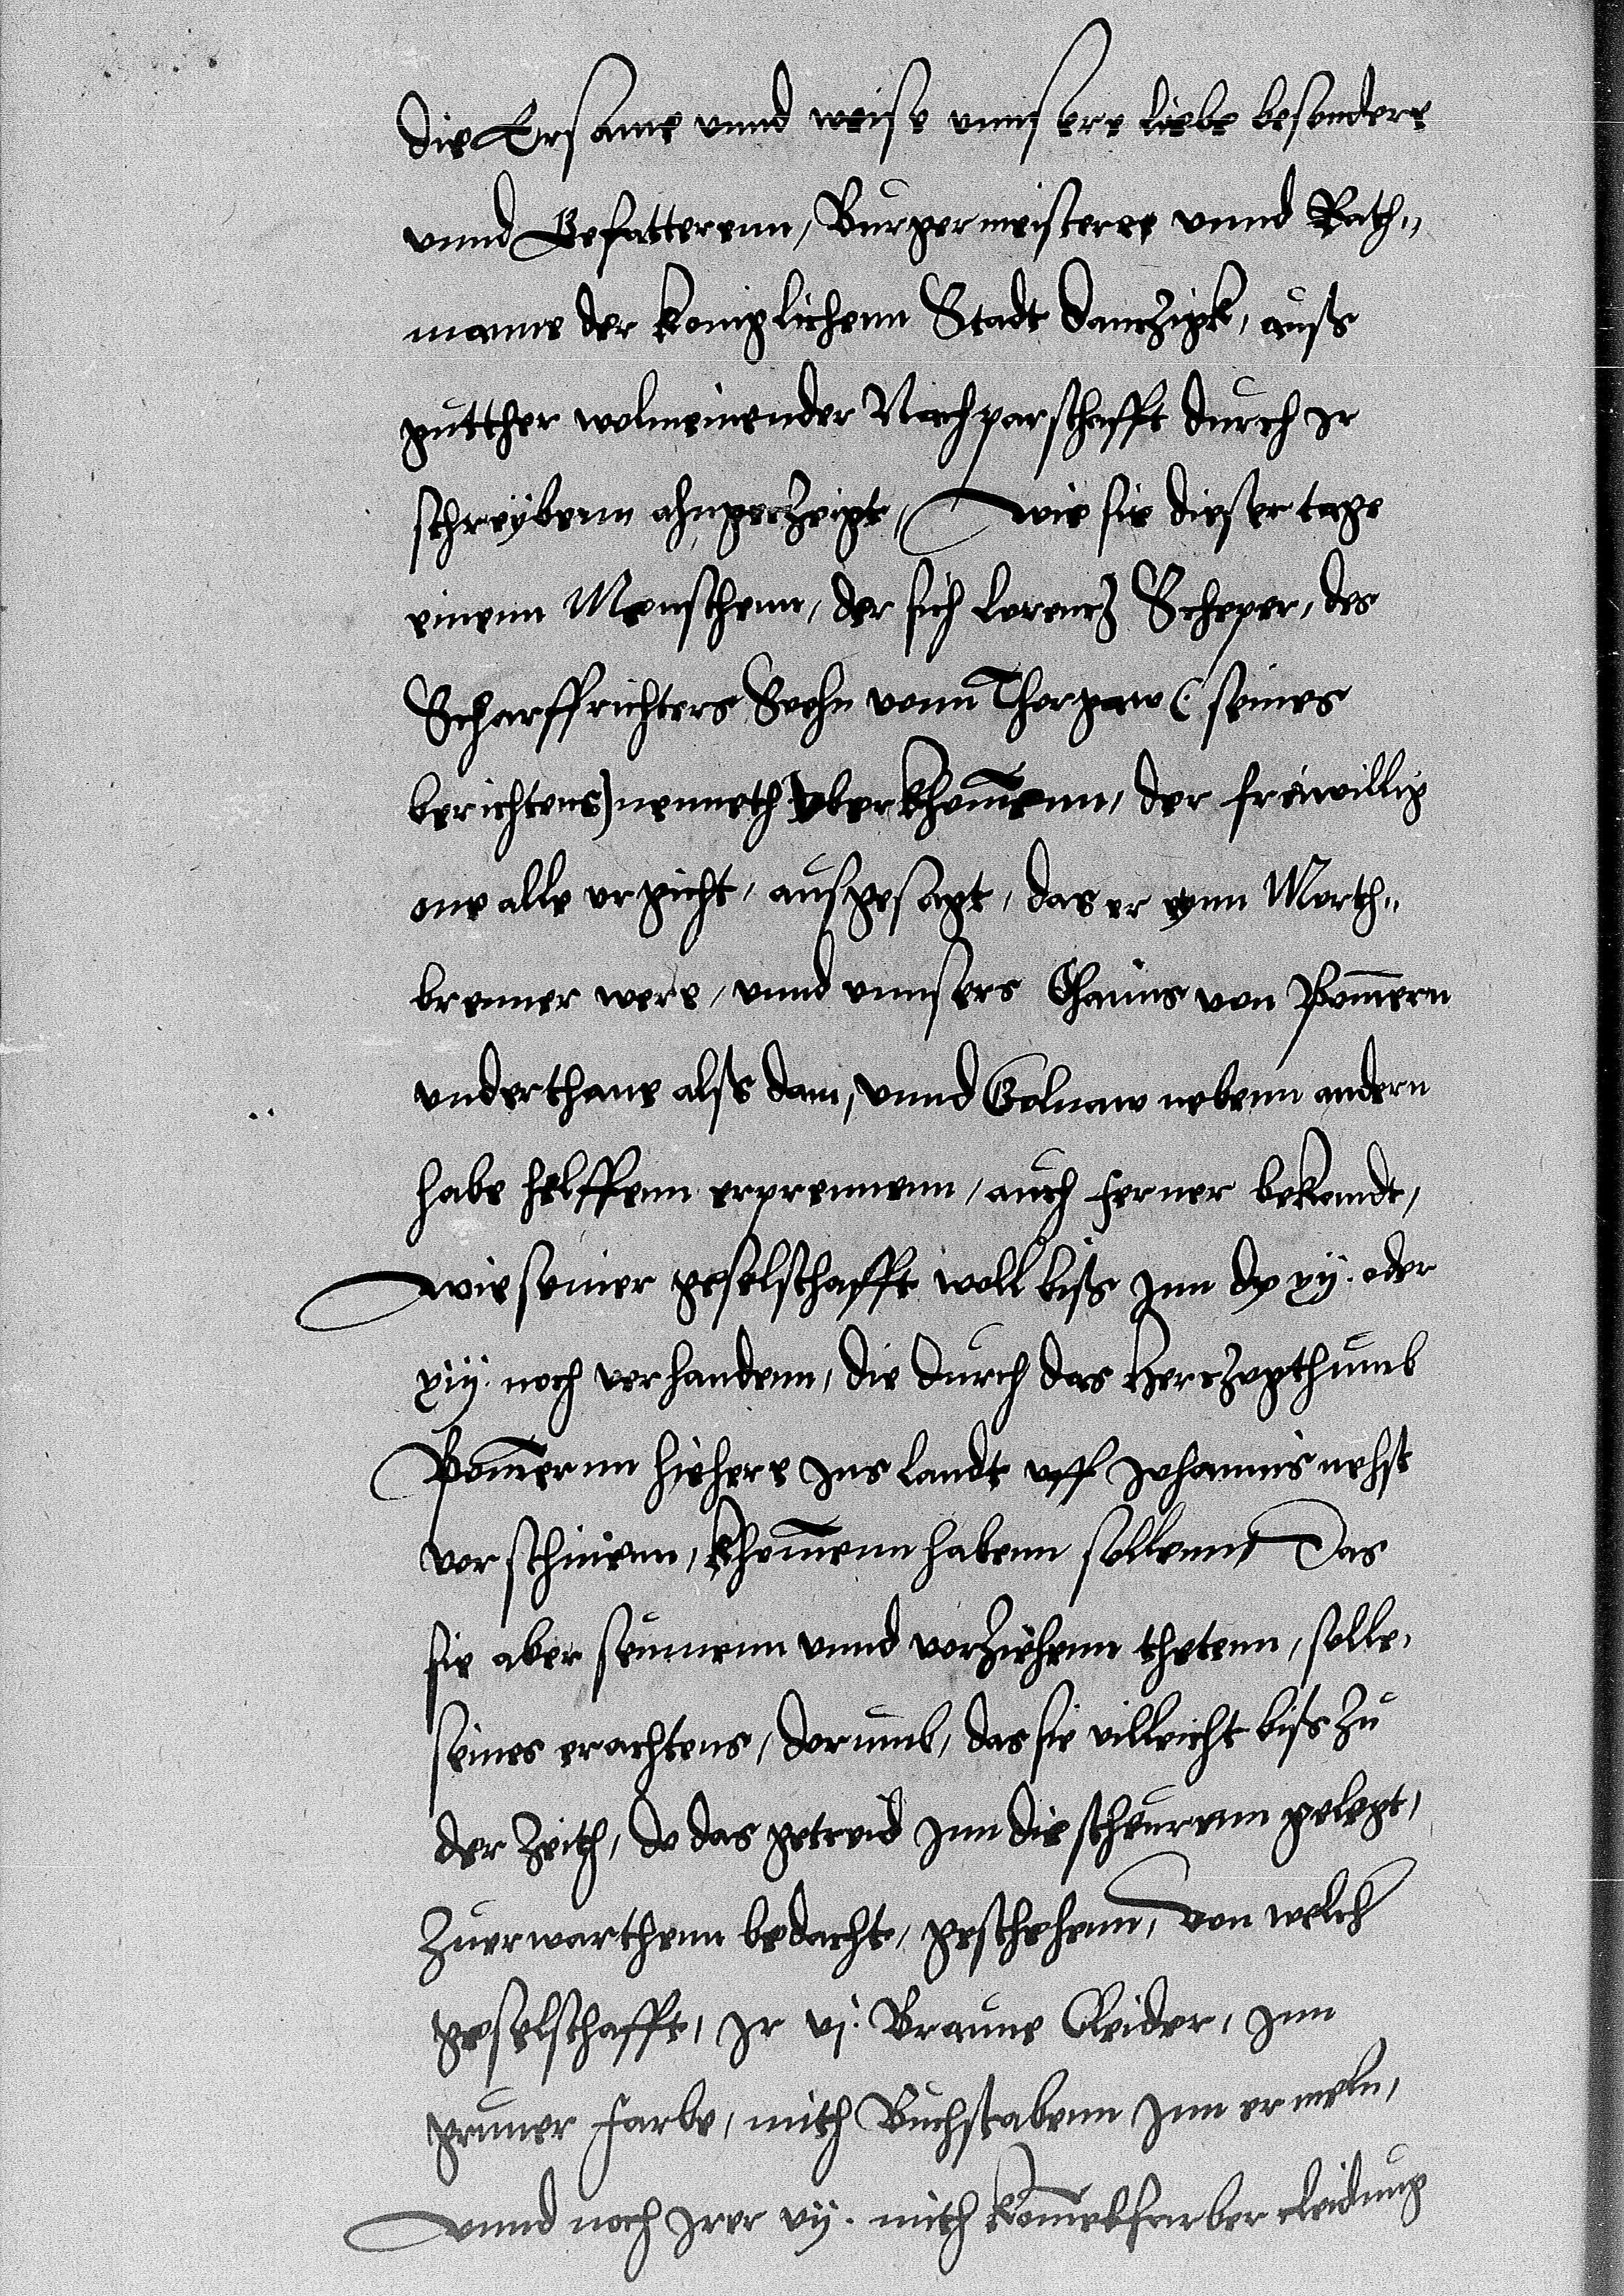 die Ersame vnnd weise vnnsere liebe besondere
vnnd Gefatterenn, Burgermeistere vnnd Rath„
manne der koniglichenn Stadt Danczigk, auß
gutther wolmeinender Nachparschafft durch Ir
schreybenn ahngeczeigt, wie sie dieser tage
einenn Menschenn, der sich Lorencz Scheper, des
Scharffrichters Sohn vonn Thorgaw (: seines
berichtens) nenneth vberkhom̄enn, der freiwillig
one alle vrgicht, außgesagt, das er eynn Morth„
brenner were, vnnd vnnsers Ohaims von Pom̄ern
vnderthane alß Dam, vnnd Golnaw nebenn andern
habe helffenn erprennenn, auch ferner bekandt,
wie seiner geselschafft woll biß Inn dy xij. oder
xiij. noch vorhandenn, die durch das Herczogthumb
Pom̄ernn hiehere Ins landt vff Johannis nehst
vorschinenn, khom̄enn habenn sollenn, Das
sie aber seumenn vnnd vorziehenn thetenn, solle,
seines erachtens, dorumb, das sie villeicht biß zu
der Zeith, do das getreid Inn die scheurenn gelegt,
zuerwarthenn bedacht, geschehenn, von welch
geselschafft, Ir vj. Braune Cleider, Inn
gruner farbe, mith Buchstabenn Inn ermeln,
vnnd noch Irer vij. mith kom̄elfarber cleidung